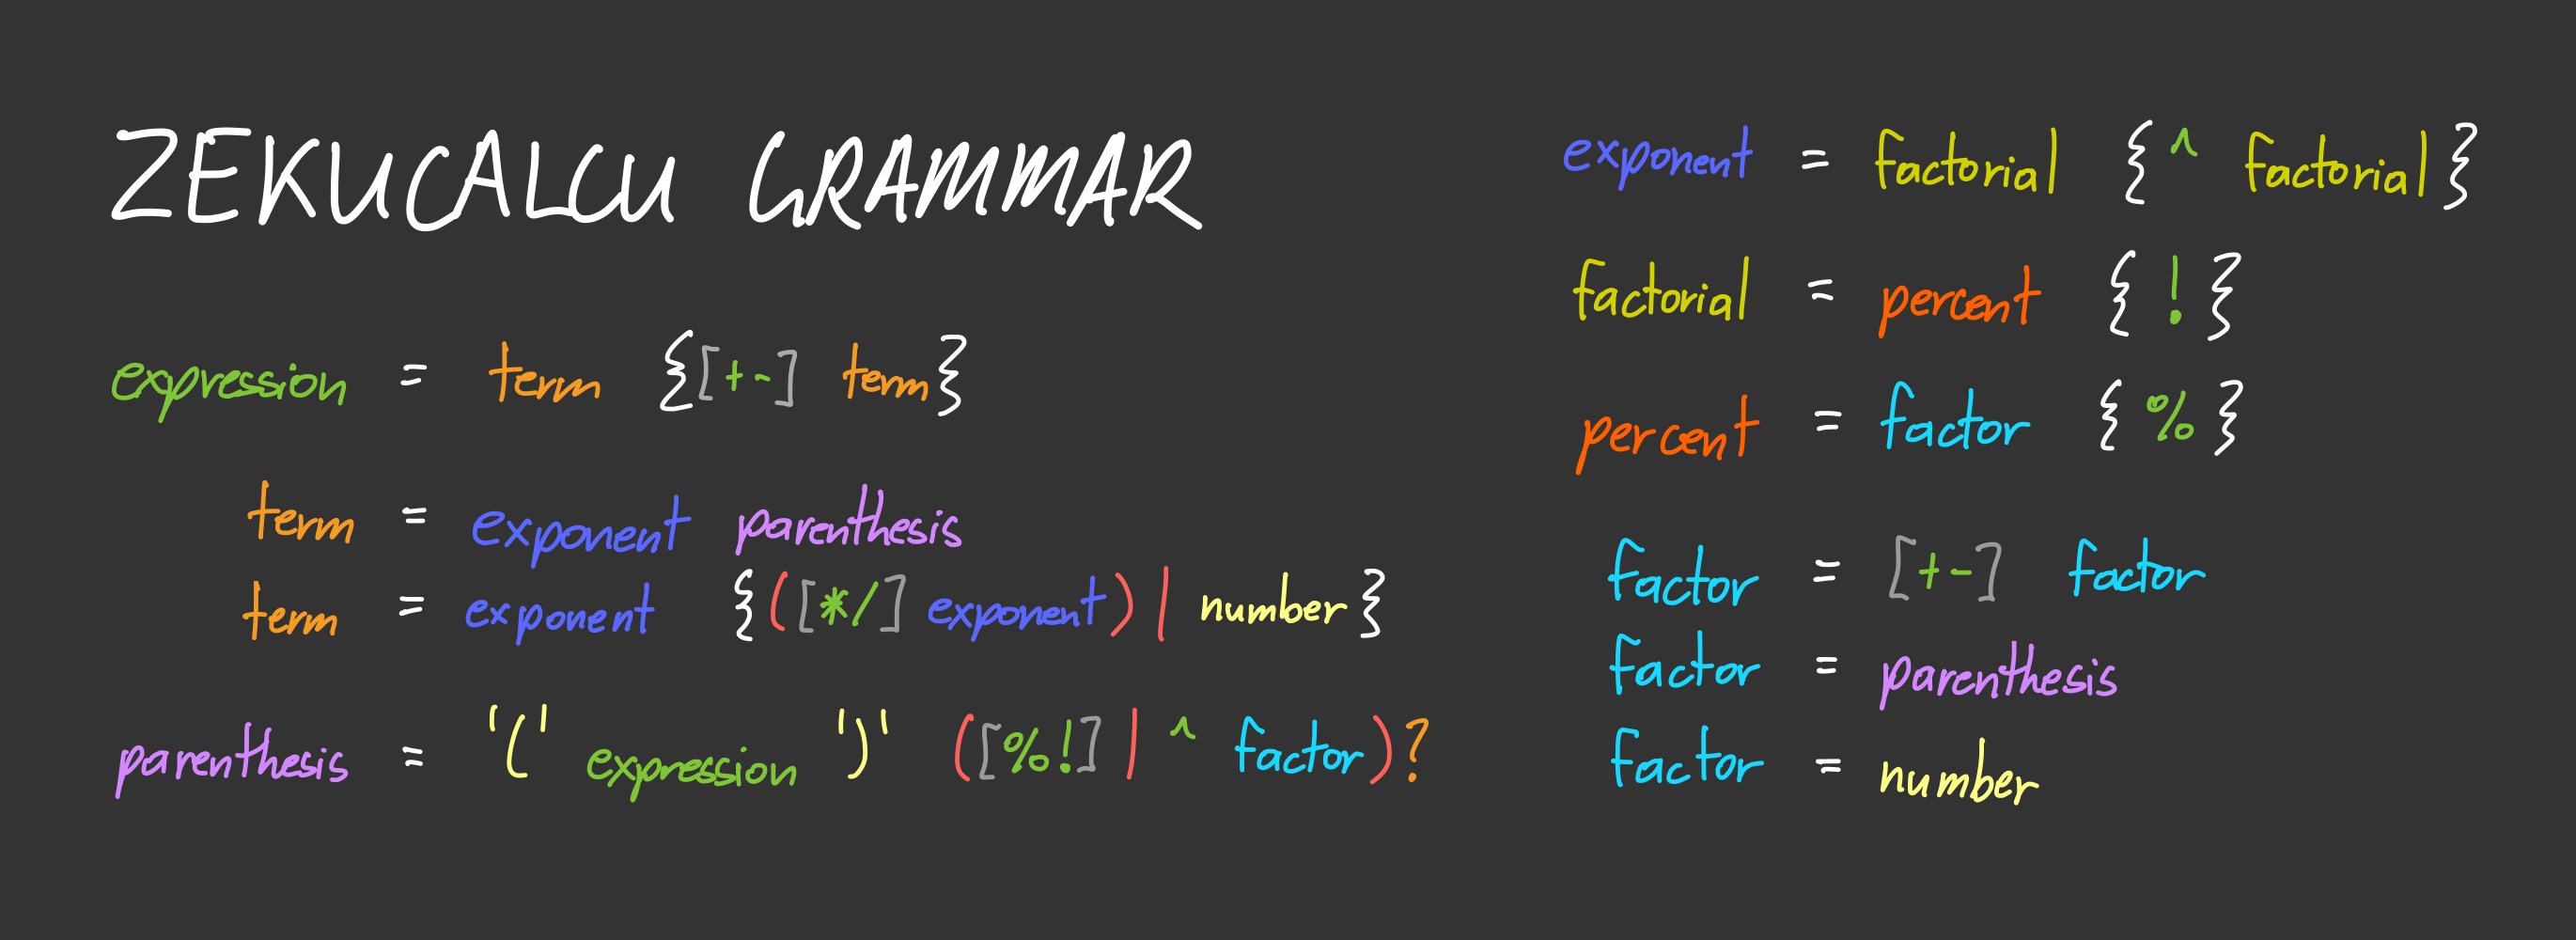 ZEKUCALCU GRAMMAR
expression = term {[+-] term}
term = exponent parenthesis
term = exponent {([*/] exponent) | number}
parenthesis = '(' expression ')' ([%!] | ^ factor)?
exponent = factorial {^ factorial}
factorial = percent {!}
percent = factor {%}
factor = [+-] factor
factor = parenthesis
factor = number